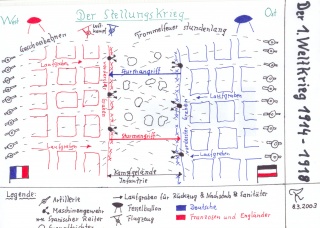 Der Stellungskrieg
West
Ost
Luft-
kampf
Geschossbahnen
Trommelfeuer stundenlang
Laufgraben
Sturmangriff
Laufgraben
Sturmangriff
Laufgraben
Laufgraben
Kampfgelände
Infanterie
Der 1. Weltkrieg 1914 - 1918
Legende:
Artillerie
Maschinengewehr
Spanischer Reiter
Laufgraben für Rückzug & Nachschub & Sanitäter
Fesselballon
Flugzeug
Deutsche
Franzosen und Engländer